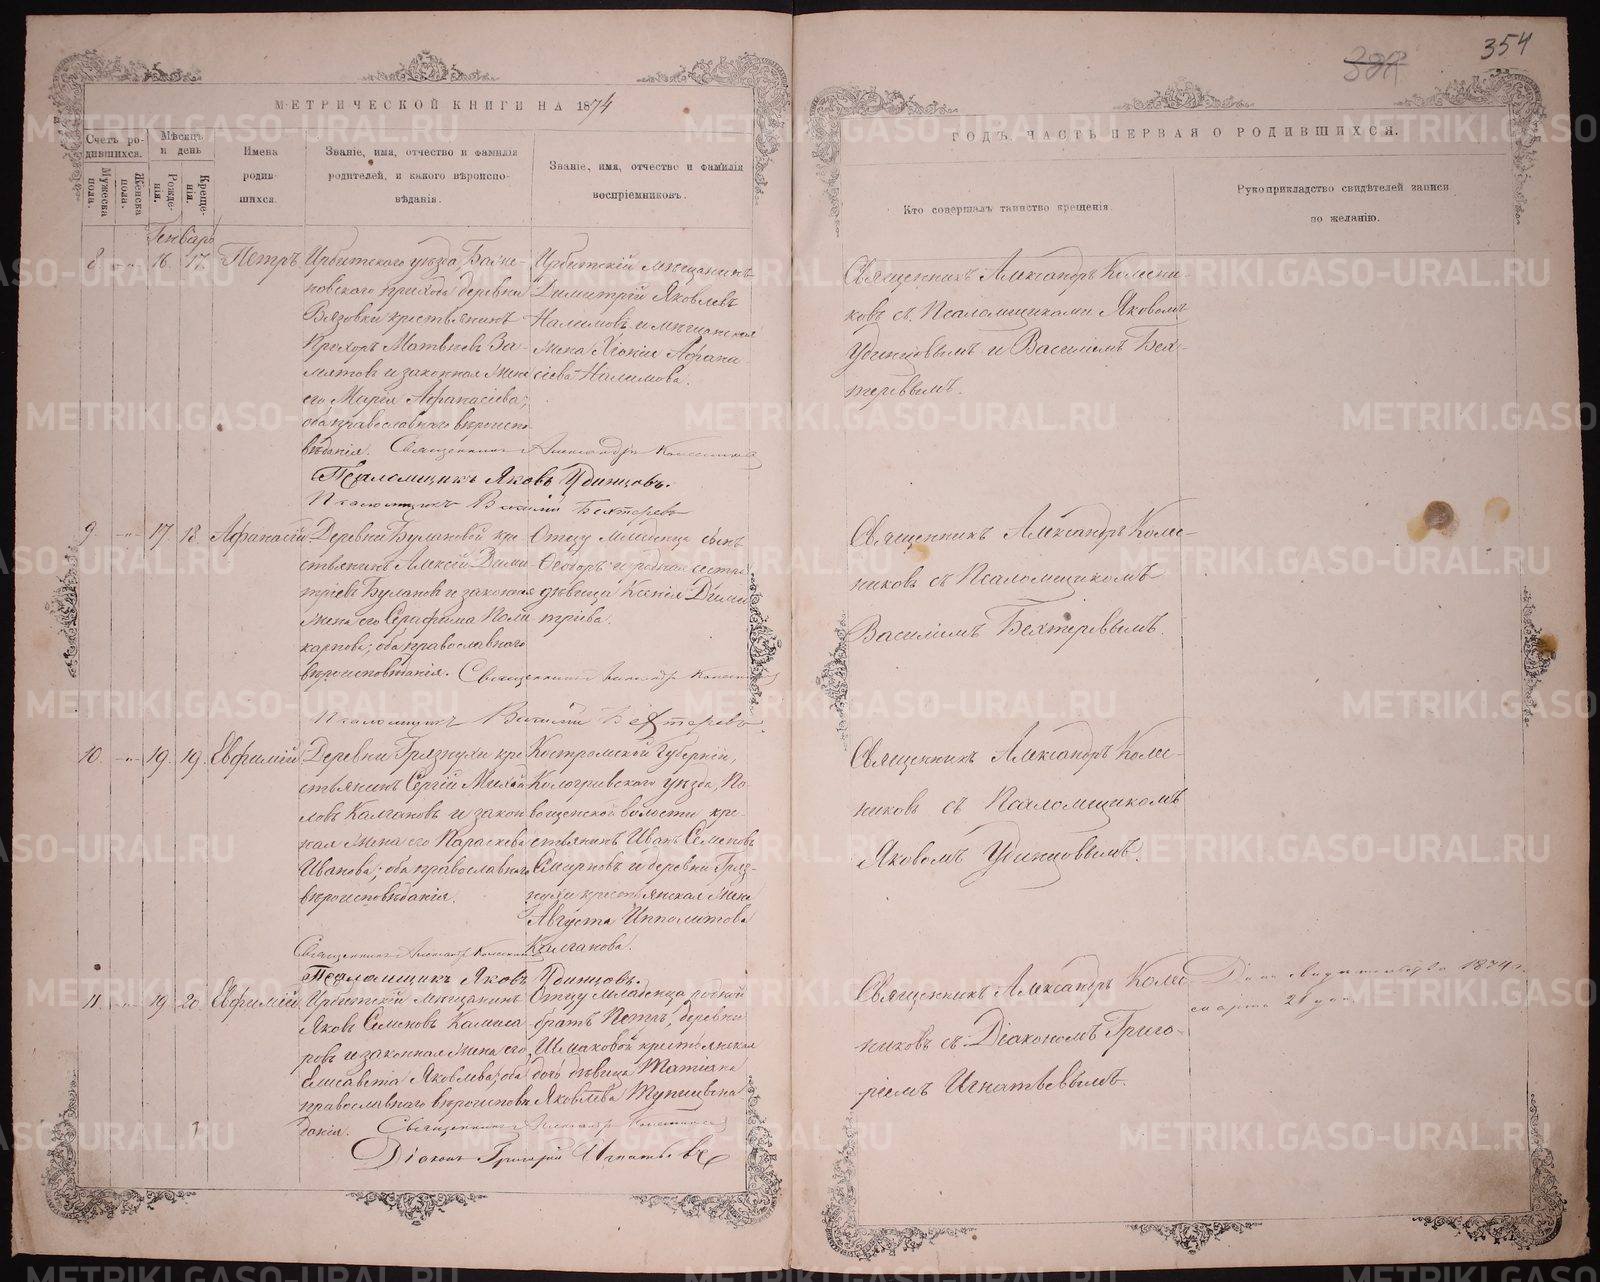 354
МЕТРИЧЕСКОЙ КНИГИ НА 1874
ГОДЪ, ЧАСТЬ ПЕРВАЯ О РОДИВШИХСЯ.
Счетъ ро-
дившихся.
Мужеска
пола.
Женска
пола.
Мѣсяцъ
и день
Рожде-
нія.
Креще-
нія.
Имена
родив-
шихся.
Званіе, имя, отчество и фамилія
родителей, и какого вѣроиспо-
вѣданія.
Званіе, имя, отчество и фамилія
воспріемниковъ.
Кто совершалъ таинство крещенія.
Рукоприкладство свидѣтелей записи
по желанію.
Генваръ
8 16. 17. Петръ
Ирбитскаго уѣзда, Байке-
новскаго прихода деревни
Вязовки крестьянинъ
Прохоръ Матвѣевъ За-
мятовъ и законная жена
его Марія Афанасіева;
оба православнаго вѣроиспо-
вѣданія. Священникъ Александръ Колесниковъ
Псаломщикъ Яковъ Удинцовъ.
Псаломщикъ Василій Бехтеревъ
Ирбитскій мѣщанинъ
Димитрій Яковлевъ
Налимовъ и мѣщанская
жена Хіонія Афана-
сіева Налимова.
Священникъ Александръ Колесни-
ковъ съ Псаломщиками Яковомъ
Удинцовымъ и Василіемъ Бех-
теревымъ.
9 17. 18. Афанасій
Деревни Булановой кре-
стьянинъ Алексій Дими-
тріевъ Булановъ и законная
жена его Серафима Поли-
карпова; оба православнаго
вѣроисповѣданія. Священникъ Александръ Колесниковъ
Псаломщикъ Василій Бехтеревъ
Отцу младенца сынъ
Ѳеодоръ и родная сестра
дѣвица Ксенія Дими-
тріева.
Священникъ Александръ Колес-
никовъ съ Псаломщикомъ
Василіемъ Бехтеревымъ.
10. 19. 19. Евфимій
Деревни Грязнухи кре-
стьянинъ Сергій Михай-
ловъ Калгановъ и закон-
ная жена его Параскева
Иванова; оба православнаго
вѣроисповѣданія.
Священникъ Александръ Колесниковъ
Псаломщикъ Яковъ Удинцовъ.
Костромской Губерніи,
Кологривскаго уѣзда,
волости кре-
стьянинъ Иванъ Семеновъ
Смирновъ и деревни Гряз-
нухи крестьянская жена
Августа Ипполитова
Калганова.
Священникъ Александръ Колес-
никовъ съ Псаломщикомъ
Яковомъ Удинцовымъ.
11. 19 20. Евфимій
Ирбитскій мѣщанинъ
Яковъ Семеновъ
и законная жена его
Елисавета Яковлева; оба
православнаго вѣроисповѣ-
данія. Священникъ Александръ Колесниковъ
Діаконъ Григорій Игнатьевъ
Отцу младенца родной
братъ Петръ, деревни
Шмаковой крестьянская
дочь дѣвица Татіана
Яковлева Тупицына
Священникъ Александръ Колес-
никовъ съ Діакономъ Григо-
ріемъ Игнатьевымъ.
1874 г.
марта 21 дня